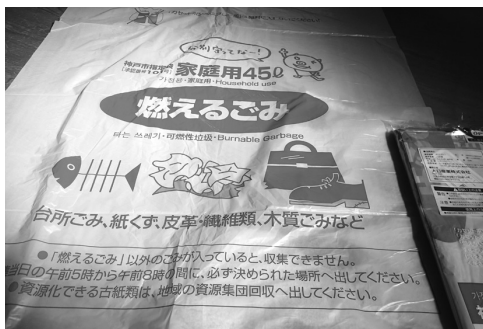 分別守ってなー!
神戸市指定袋
家庭用45ℓ
가정용・家庭用・Household use
燃えるごみ
타는 쓰레기・可燃性垃圾・Burnable Garbage
台所ごみ、紙くず、皮革・繊維類、木質ごみなど
●「燃えるごみ」以外のごみが入っていると、収集できません。
当日の午前5時から午前8時の間に、必ず決められた場所へ出してください。
●資源化できる古紙類は、地域の資源集団回収へ出してください。